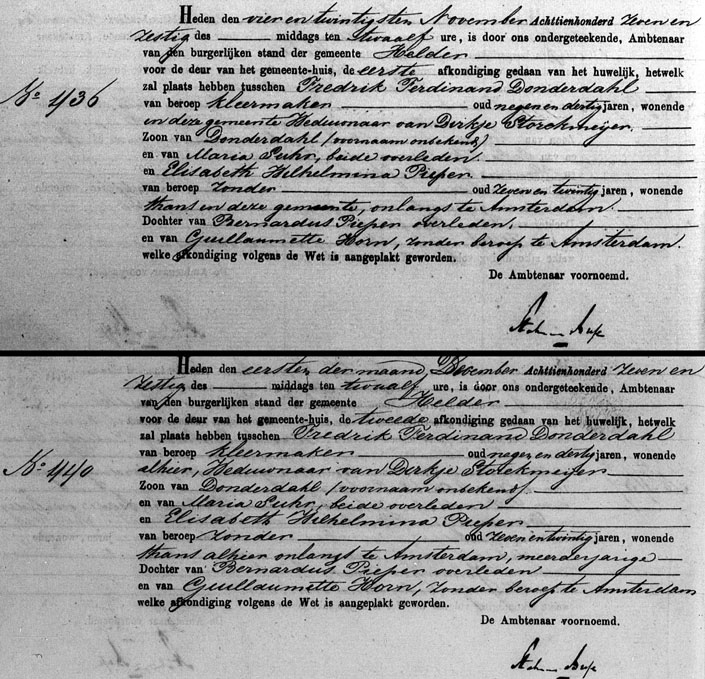 Heden den vier en twintigsten November Achttienhonderd Zeven en
Zestig des middags ten twaalf ure, is door ons ondergeteekende, Ambtenaar
van den burgerlijken stand der gemeente Helder
voor de deur van het gemeente-huis, de eerste afkondiging gedaan van het huwelijk, hetwelk
zal plaats hebben tusschen Fredrik Ferdinand Donderdahl
No 436
van beroep kleermaker oud negen en dertig jaren, wonende
in deze gemeente Weduwnaar van Dirkje Storckmeijer.
Zoon van Donderdahl (voornaam onbekend)
en van Maria Suhr, beide overleden.
en Elisabeth Wilhelmina Pieper.
van beroep zonder oud Zeven en twintig jaren, wonende
thans in deze gemeente, onlangs te Amsterdam.
Dochter van Bernardus Pieper overleden,
en van Guillaumette Horn, zonder beroep te Amsterdam.
welke afkondiging volgens de Wet is aangeplakt geworden.
De Ambtenaar voornoemd.
Heden den eersten der maand December Achttienhonderd Zeven en
Zestig des middags ten twaalf ure, is door ons ondergeteekende, Ambtenaar
van den burgerlijken stand der gemeente Helder
voor de deur van het gemeente-huis, de tweede afkondiging gedaan van het huwelijk, hetwelk
zal plaats hebben tusschen Fredrik Ferdinand Donderdahl
van beroep kleermaker oud negen en dertig jaren, wonende
No 440
alhier, Weduwnaar van Dirkje Storckmeijer
Zoon van Donderdahl (voornaam onbekend)
en van Maria Suhr, beide overleden
en Elisabeth Wilhelmina Pieper
van beroep zonder oud Zeven en twintig jaren, wonende
thans alhier onlangs te Amsterdam, meerderjarige
Dochter van Bernardus Pieper overleden
en van Guillaumette Horn, zonder beroep te Amsterdam
welke afkondiging volgens de Wet is aangeplakt geworden.
De Ambtenaar voornoemd.